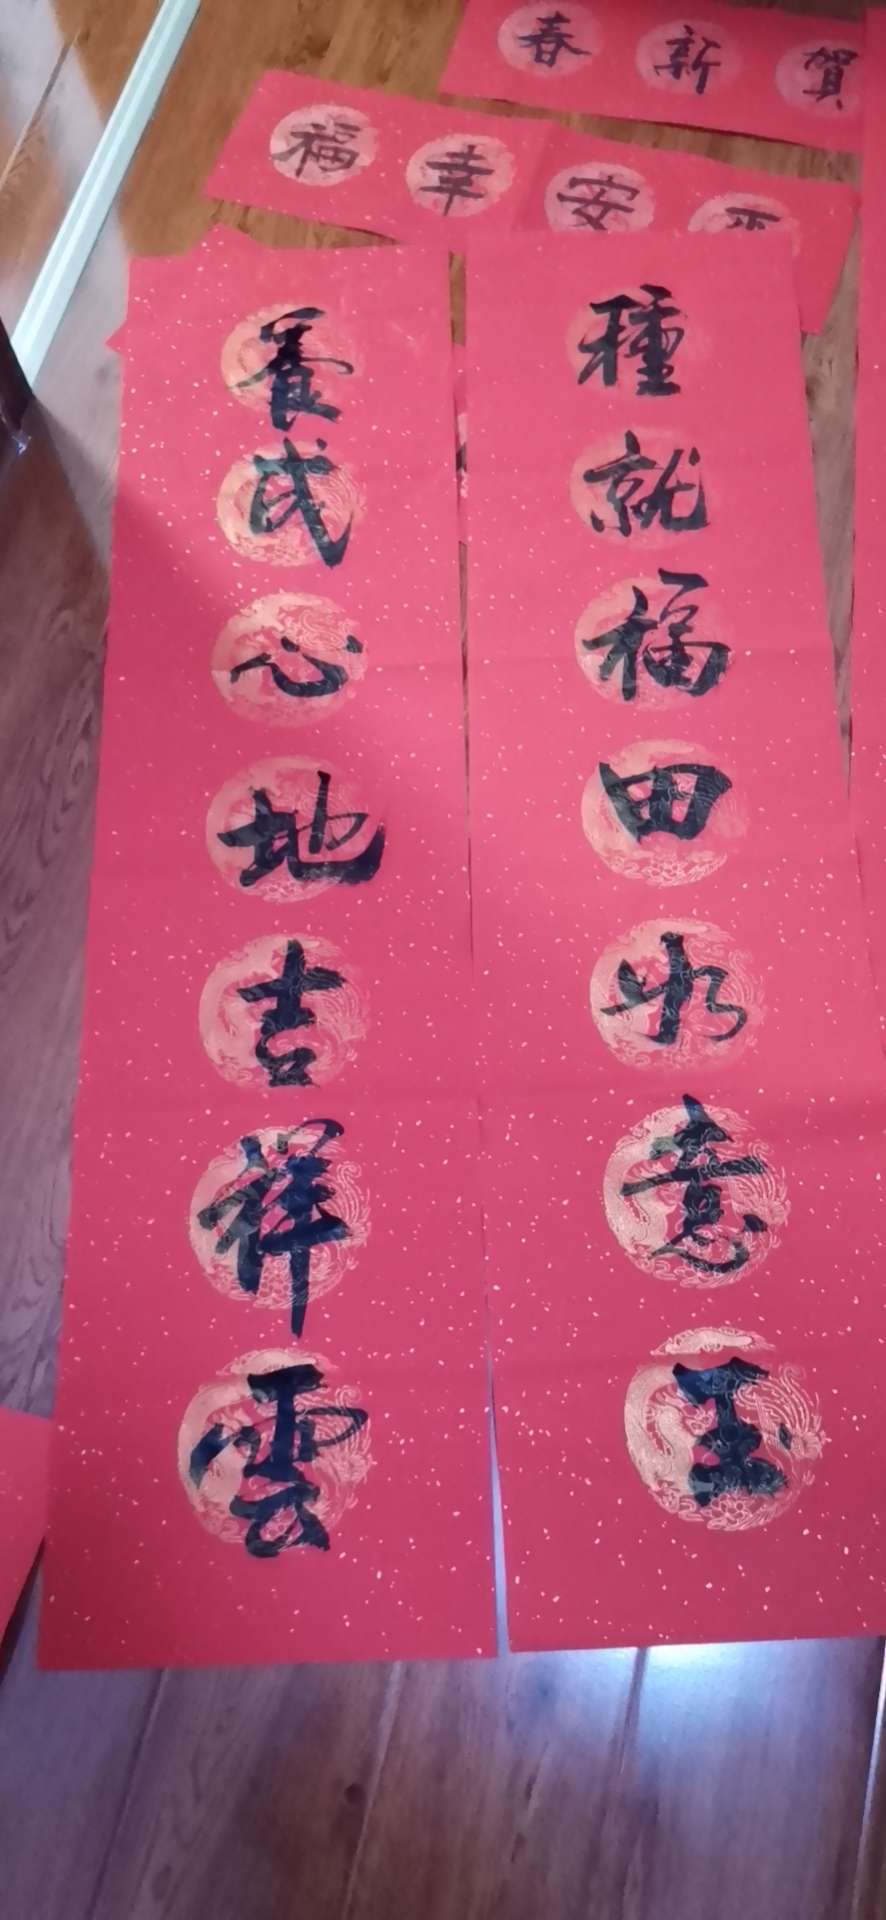 賀新春
平安幸福
種就福田如意玉
養成心地吉祥雲